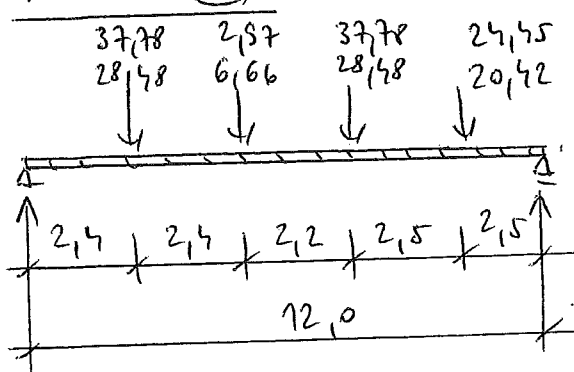 37,78 2,97 37,78 24,45
28,48 6,66 28,48 20,42
2,4 2,4 2,2 2,5 2,5
12,0